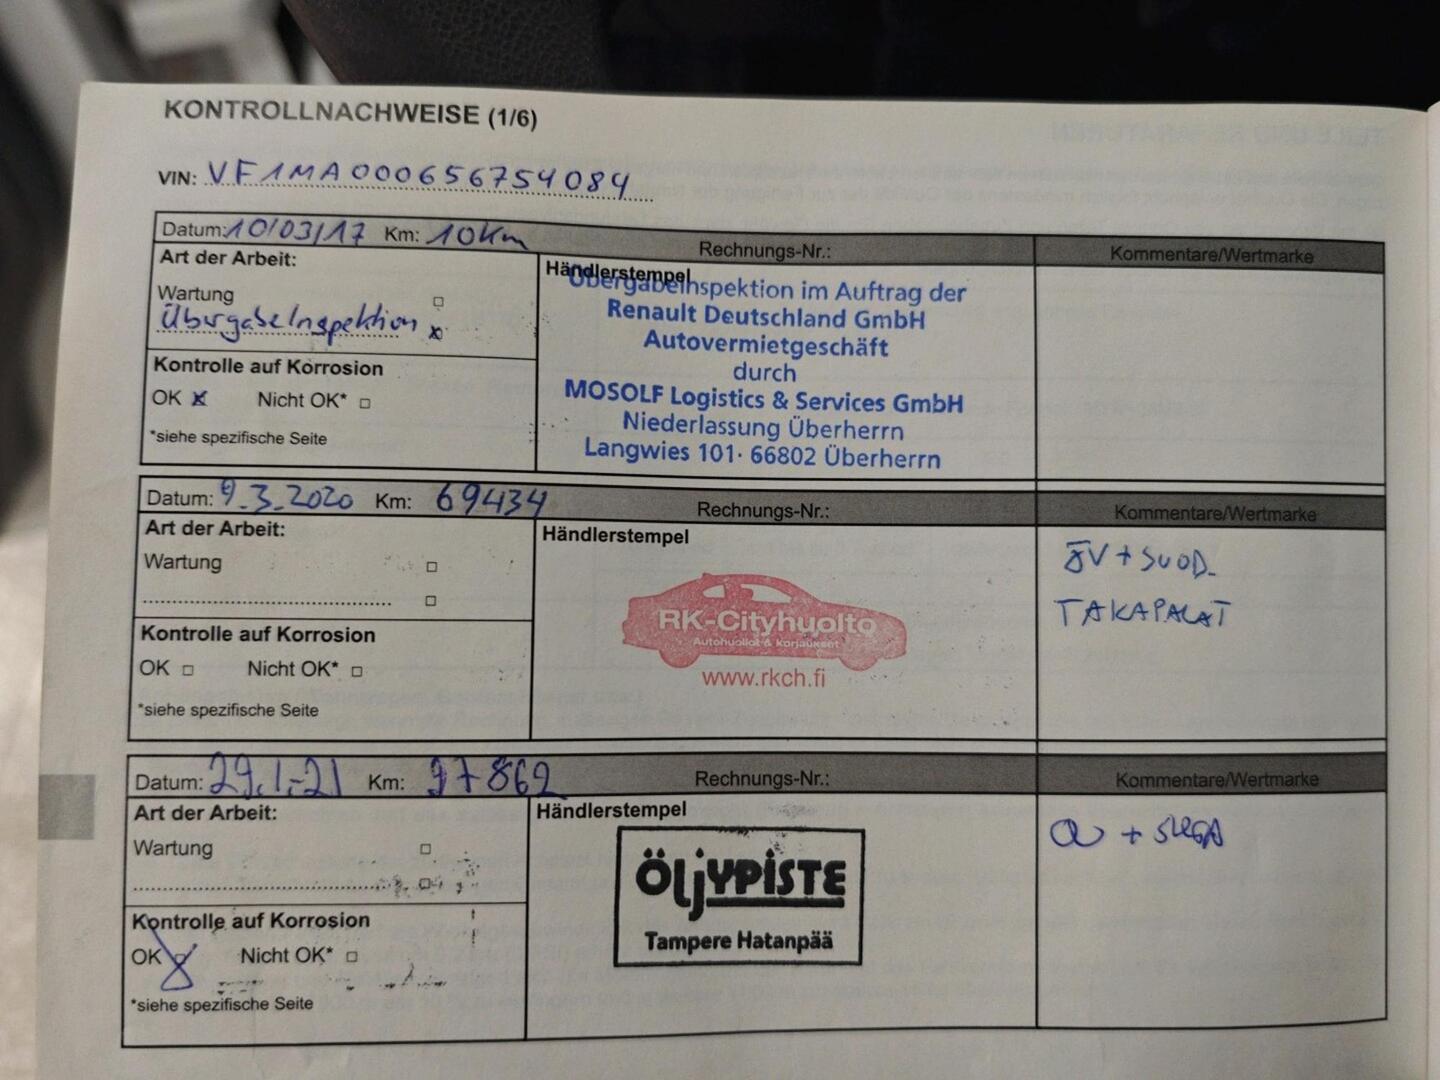 KONTROLLNACHWEISE (1/6)
VIN: VF1MA000656754084
Datum: 10/03/17 Km: 10Km Rechnungs-Nr.: Kommentare/Wertmarke
Art der Arbeit:
Wartung
Übergabeinspektion x
Kontrolle auf Korrosion
OK x Nicht OK*
*siehe spezifische Seite
Händlerstempel
Übergabeinspektion im Auftrag der
Renault Deutschland GmbH
Autovermietgeschäft
durch
MOSOLF Logistics & Services GmbH
Niederlassung Überherrn
Langwies 101· 66802 Überherrn
Datum: 9.3.2020 Km: 69434 Rechnungs-Nr.: Kommentare/Wertmarke
Art der Arbeit:
Wartung
Kontrolle auf Korrosion
OK Nicht OK*
*siehe spezifische Seite
Händlerstempel
RK-Cityhuolto
Autohuollot & korjaukset
www.rkch.fi
ÖV + SUOD.
TAKAPALAT
Datum: 29.1.-21 Km: 97862 Rechnungs-Nr.: Kommentare/Wertmarke
Art der Arbeit:
Wartung
Kontrolle auf Korrosion
OK Nicht OK*
*siehe spezifische Seite
Händlerstempel
ÖLJYPISTE
Tampere Hatanpää